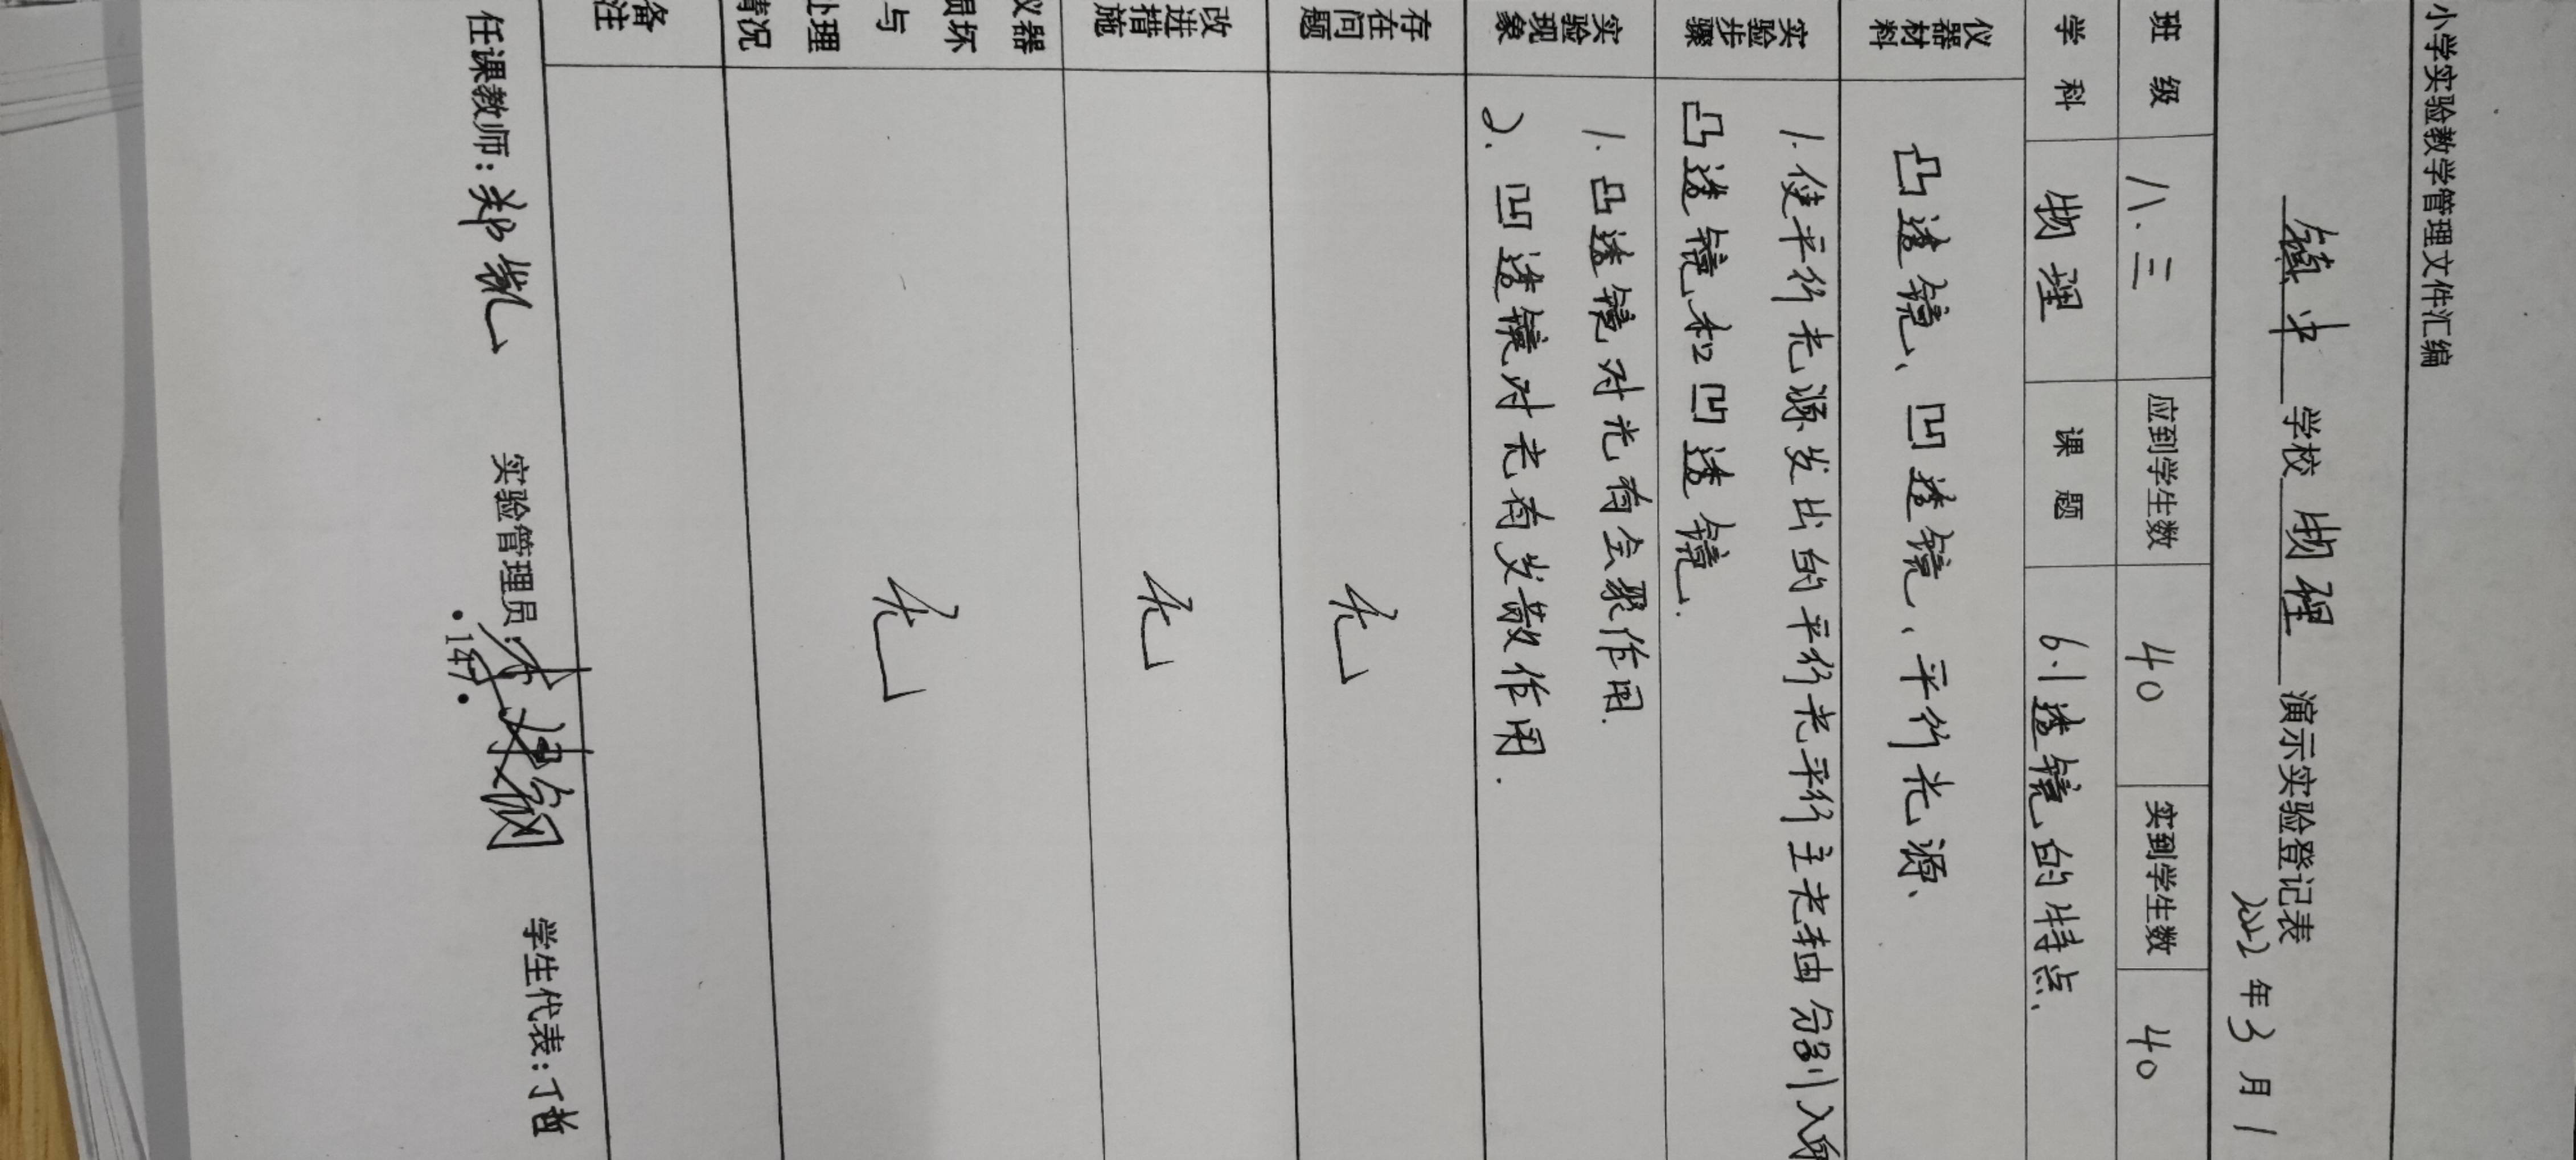 小学实验教学管理文件汇编
镇中 学校 物理 演示实验登记表
2022年3月1
班级 八.三 应到学生数 40 实到学生数 40
学科 物理 课题 6.1透镜的特点.
仪器材料 凸透镜、凹透镜、平行光源、
实验步骤 1.使平行光源发出的平行光平行主光轴分别入射
凸透镜和凹透镜.
实验现象 1.凸透镜对光有会聚作用.
2.凹透镜对光有发散作用.
存在问题 无
改进措施 无
仪器损坏与处理情况 无
备注
任课教师:郑凯 实验管理员: 学生代表:丁哲
·147·